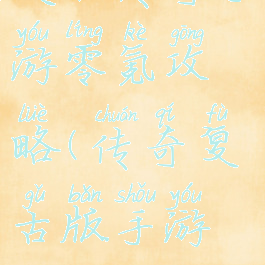 yóu líng kè gōng
游零氪攻
lüè chuán qí fù
略(传奇复
gǔ bǎn shǒu yóu
古版手游